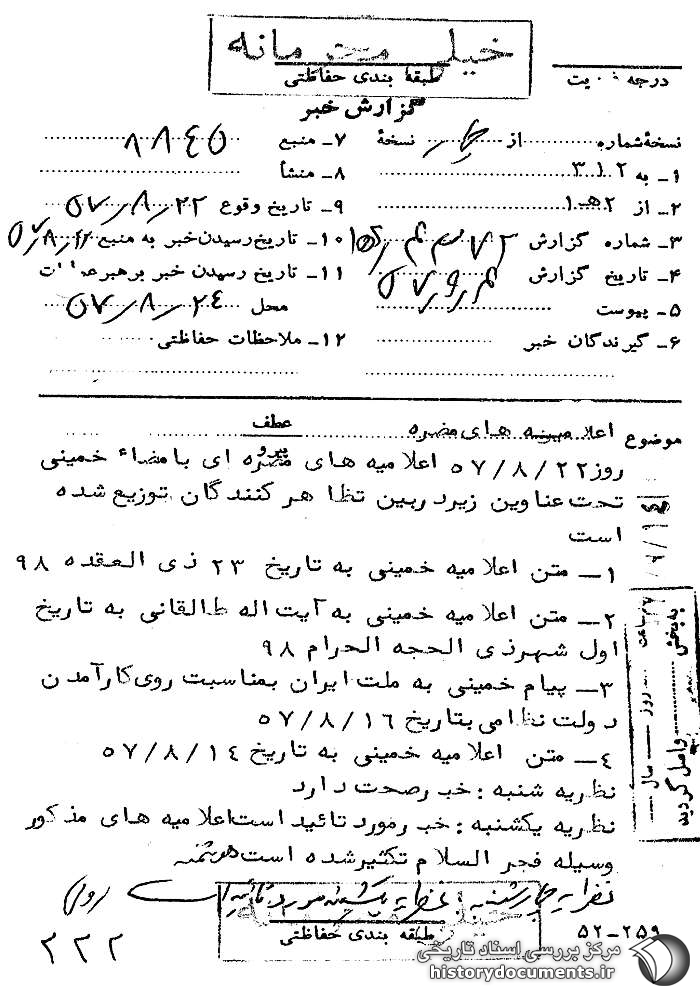 خیلی محرمانه
طبقه بندی حفاظتی
گزارش خبر
نسخهٔ شماره ........ از چهار نسخهٔ
۱ـ به ۳۱۲
۲ـ از ۲هـ۱
۳ـ شماره گزارش
۴ـ تاریخ گزارش
۵ـ پیوست
۶ـ گیرندگان خبر
۷ـ منبع ۸۸۴۵
۸ـ منشأ
۹ـ تاریخ وقوع ۵۷/۸/۲۲
۱۰ـ تاریخ رسیدن خبر به منبع
۱۱ـ تاریخ رسیدن خبر برهبر
محل ۵۷/۸/۲۴
۱۲ـ ملاحظات حفاظتی
موضوع اعلامیه های مضره
عطف
پیرو
روز ۵۷/۸/۲۲ اعلامیه های مضره ای با مضاء خمینی
تحت عناوین زیر در بین تظاهرکنندگان توزیع شده
است
۱ـ متن اعلامیه خمینی به تاریخ ۲۳ ذی العقده ۹۸
۲ـ متن اعلامیه خمینی به آیت اله طالقانی به تاریخ
اول شهر ذی الحجه الحرام ۹۸
۳ـ پیام خمینی به ملت ایران بمناسبت روی کار آمدن
دولت نظامی بتاریخ ۵۷/۸/۱۶
۴ـ متن اعلامیه خمینی به تاریخ ۵۷/۸/۱۴
نظریه شنبه : خبر صحت دارد
نظریه یکشنبه : خبر مورد تائید است اعلامیه های مذکور
وسیله فجر السلام تکثیر شده است
نظریه چهارشنبه : نظریه یکشنبه مورد تائید است
طبقه بندی حفاظتی
۵۲-۲۵۹
۲۲۲
به بخش
ساعت
روز
سال
واصل گردید
مرکز بررسی اسناد تاریخی
historydocuments.ir